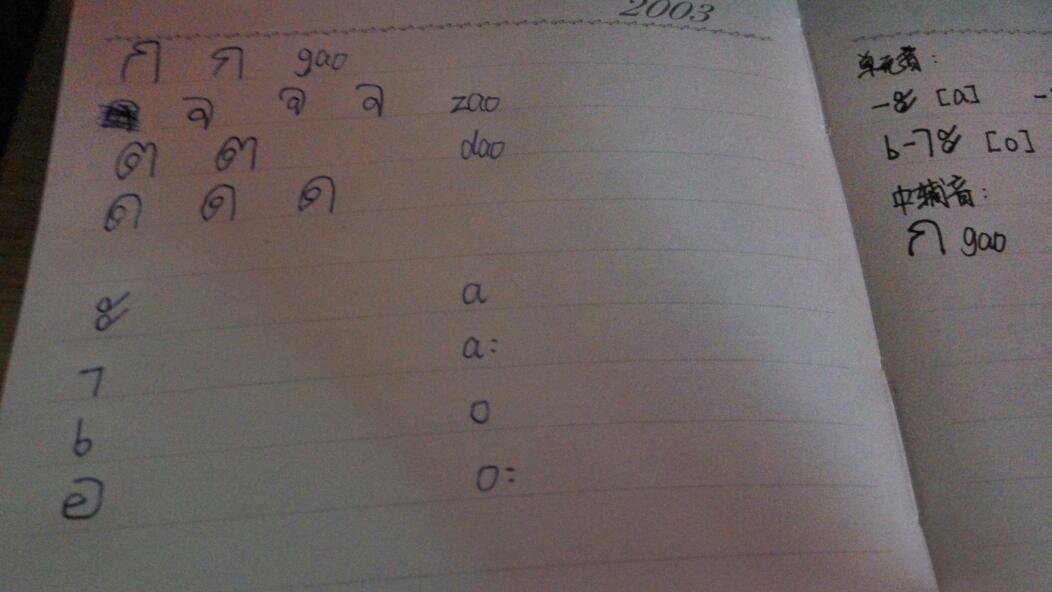 2003
ก ก gao
จ จ จ zao
ต ต dao
ด ด ด
ะ a
า a:
เ o
อ o:
单元音:
-ะ [a]
เ-าะ [o]
中辅音:
ก gao